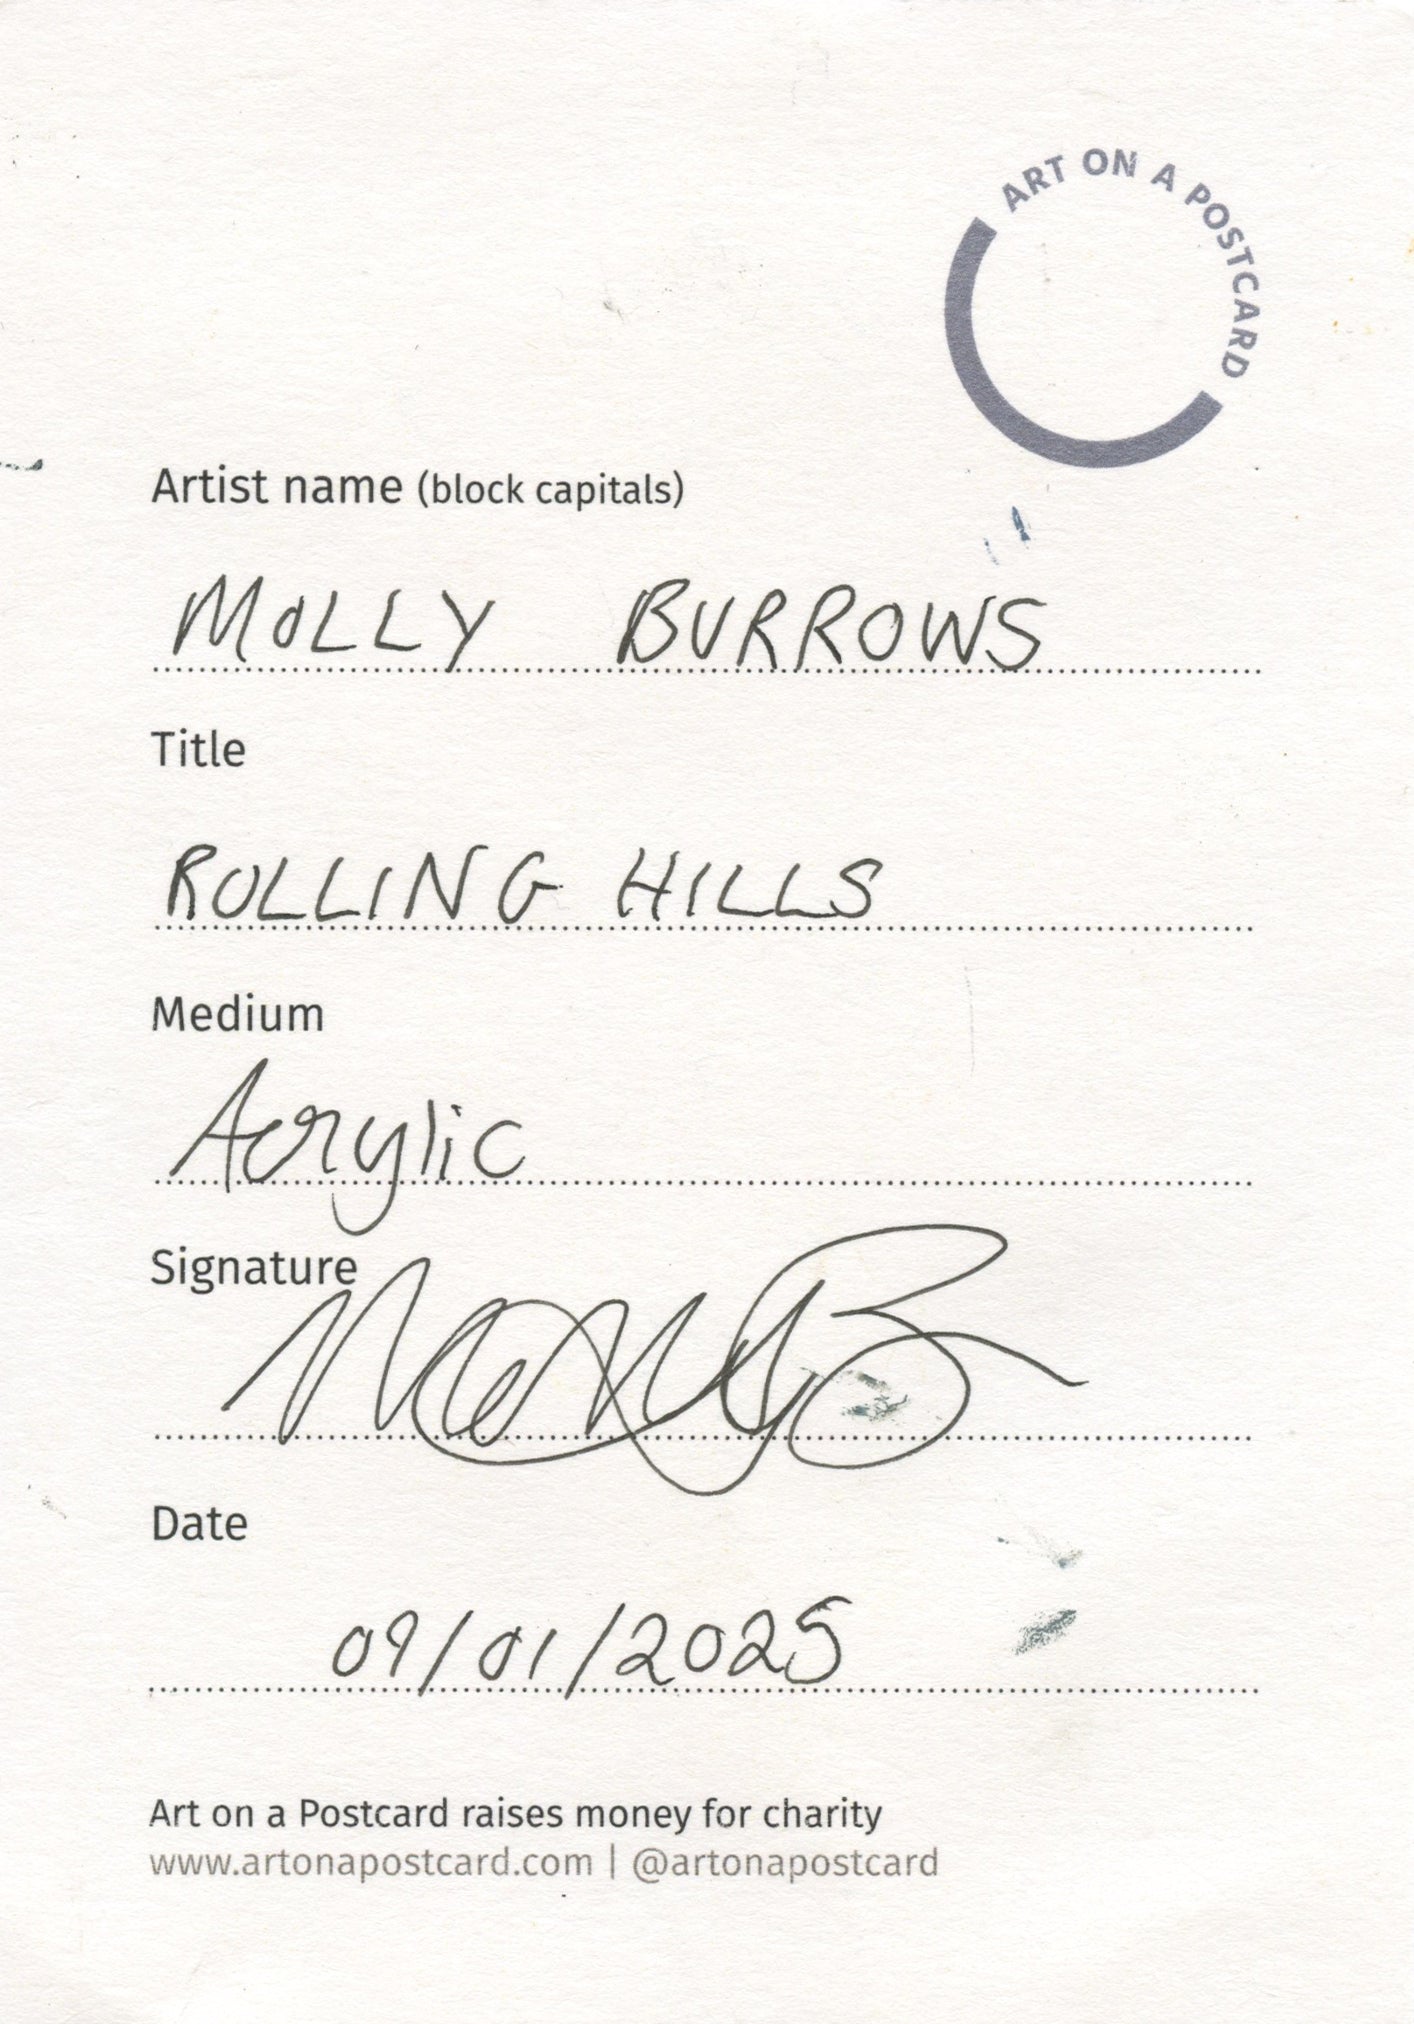 ART ON A POSTCARD
Artist name (block capitals)
MOLLY BURROWS
Title
ROLLING HILLS
Medium
Acrylic
Signature
Date
09/01/2025
Art on a Postcard raises money for charity
www.artonapostcard.com | @artonapostcard